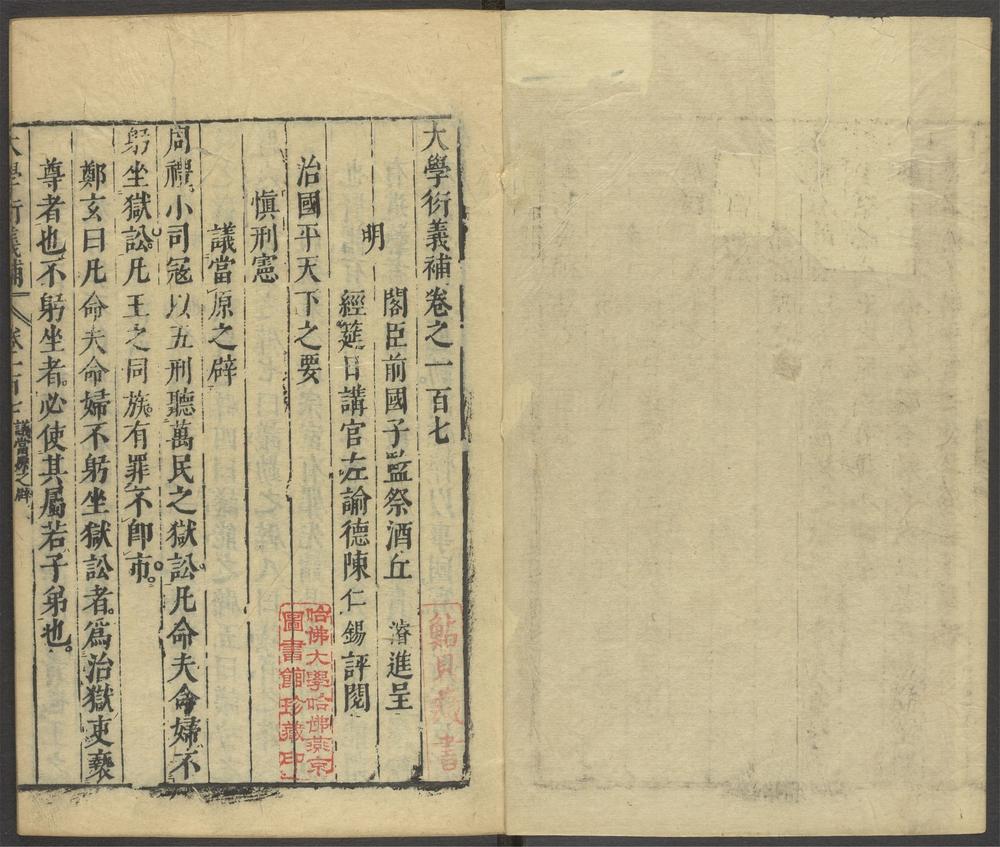 大學衍義補卷之一百七
明
閣臣前國子監祭酒丘 濬進呈
經筵日講官左諭德陳仁錫評閱
治國平天下之要
慎刑憲
議當原之辟
周禮小司寇以五刑聽萬民之獄訟。凡命夫命婦不
躬坐獄訟。凡王之同族有罪不卽市。
鄭玄曰凡命夫命婦不躬坐獄訟者。爲治獄吏褻
尊者也不躬坐者。必使其屬若子弟也。
大學衍義補 卷一百七 議當原之辟
哈佛大學哈佛燕京
圖書館珍藏印
藏書